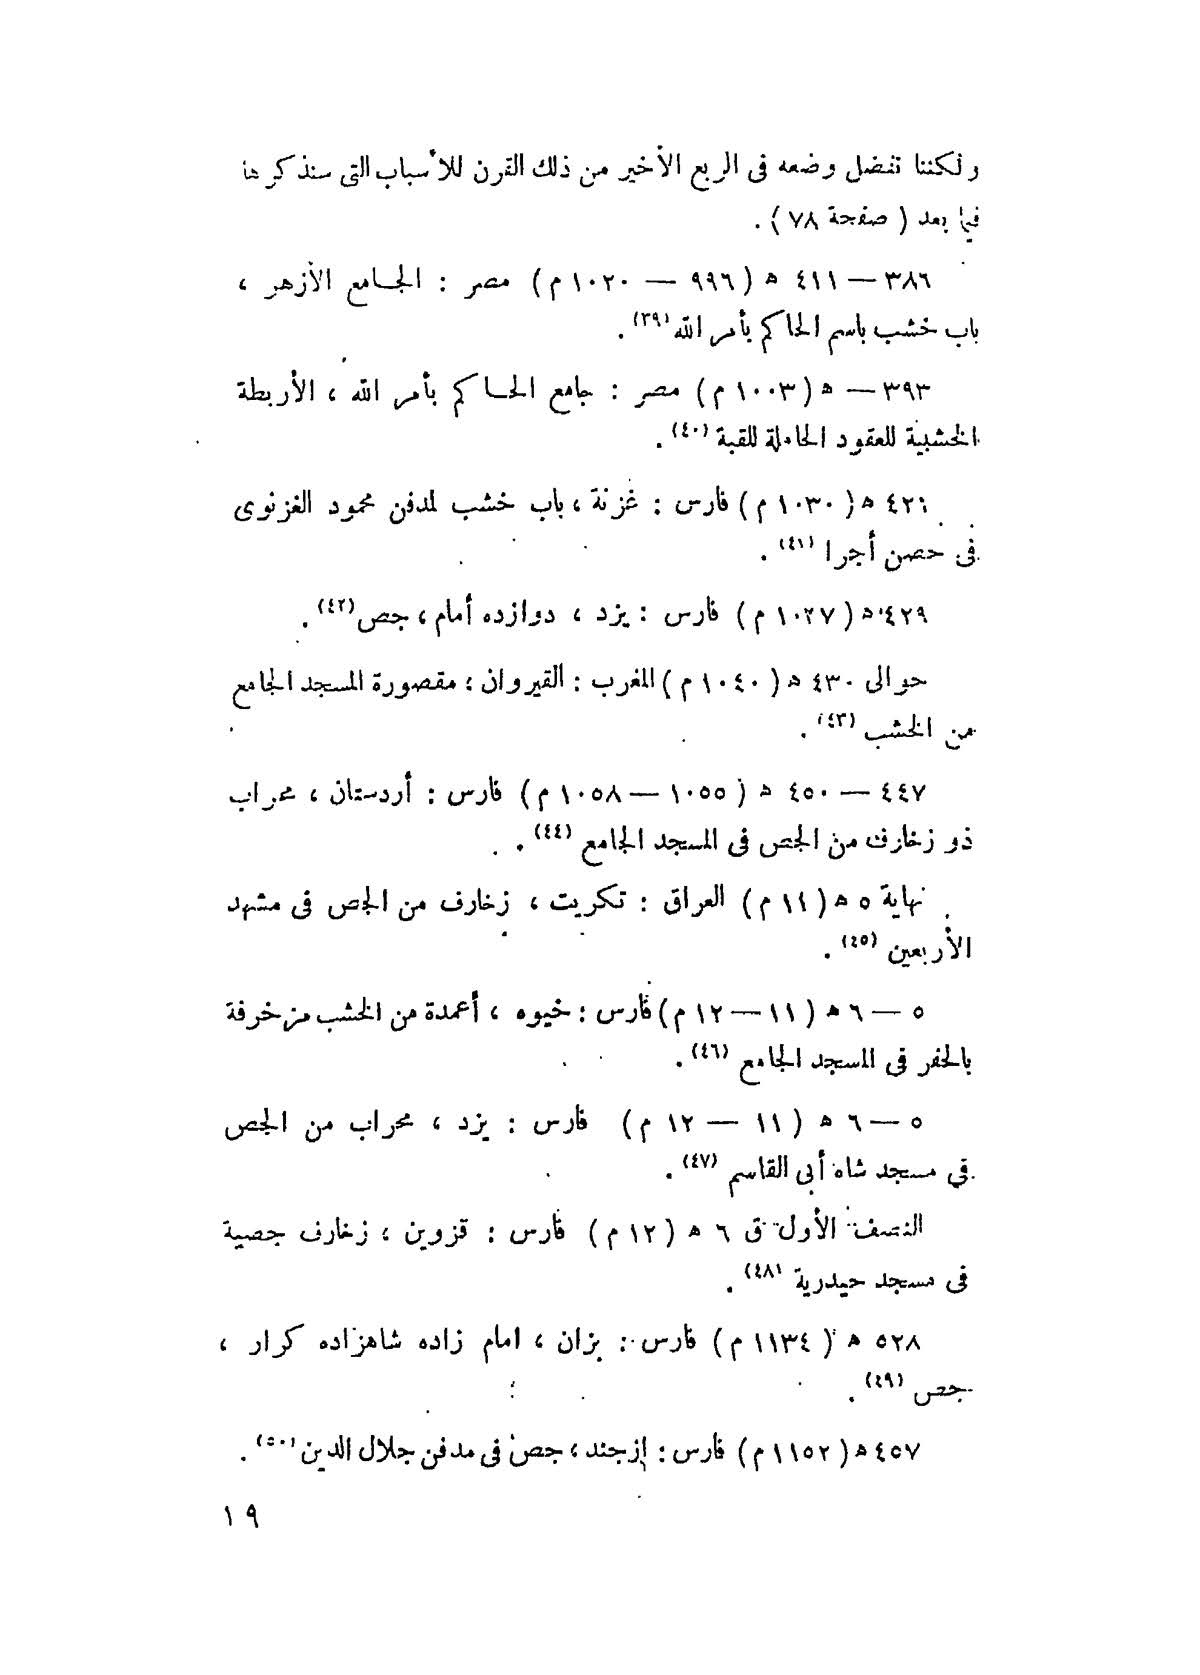 ولكننا نفضل وضعه فى الربع الأخير من ذلك القرن للأسباب التى سنذكرها
فيما بعد ( صفحة ٧٨ ) .
٣٨٦ — ٤١١ ه ( ٩٩٦ — ١٠٢٠ م ) مصر : الجامع الأزهر ،
باب خشب باسم الحاكم بأمر الله (٣٩) .
٣٩٣ — ه ( ١٠٠٣ م ) مصر : جامع الحاكم بأمر الله ، الأربطة
الخشبية للعقود الحاملة للقبة (٤٠) .
٤٢١ ه ( ١٠٣٠ م ) فارس : غزنة ، باب خشب لمدفن محمود الغزنوى
فى حصن أجرا (٤١) .
٤٢٩ ه ( ١٠٢٧ م ) فارس : يزد ، دوازده أمام ، جص (٤٢) .
حوالى ٤٣٠ ه ( ١٠٤٠ م ) المغرب : القيروان ؛ مقصورة المسجد الجامع
من الخشب (٤٣) .
٤٤٧ — ٤٥٠ ه ( ١٠٥٥ — ١٠٥٨ م ) فارس : أردستان ، محراب
ذو زخارف من الجص فى المسجد الجامع (٤٤) .
نهاية ٥ ه ( ١١ م ) العراق : تكريت ، زخارف من الجص فى مشهد
الأربعين (٤٥) .
٥ — ٦ ه ( ١١ — ١٢ م ) فارس : خيوه ، أعمدة من الخشب مزخرفة
بالحفر فى المسجد الجامع (٤٦) .
٥ — ٦ ه ( ١١ — ١٢ م ) فارس : يزد ، محراب من الجص
فى مسجد شاه أبى القاسم (٤٧) .
النصف الأول ق ٦ ه ( ١٢ م ) فارس : قزوين ، زخارف جصية
فى مسجد حيدرية (٤٨) .
٥٢٨ ه ( ١١٣٤ م ) فارس : بزان ، امام زاده شاهزاده كرار ،
جص (٤٩) .
٤٥٧ ه ( ١١٥٢ م ) فارس : إزجند ، جص فى مدفن جلال الدين (٥٠) .
١٩